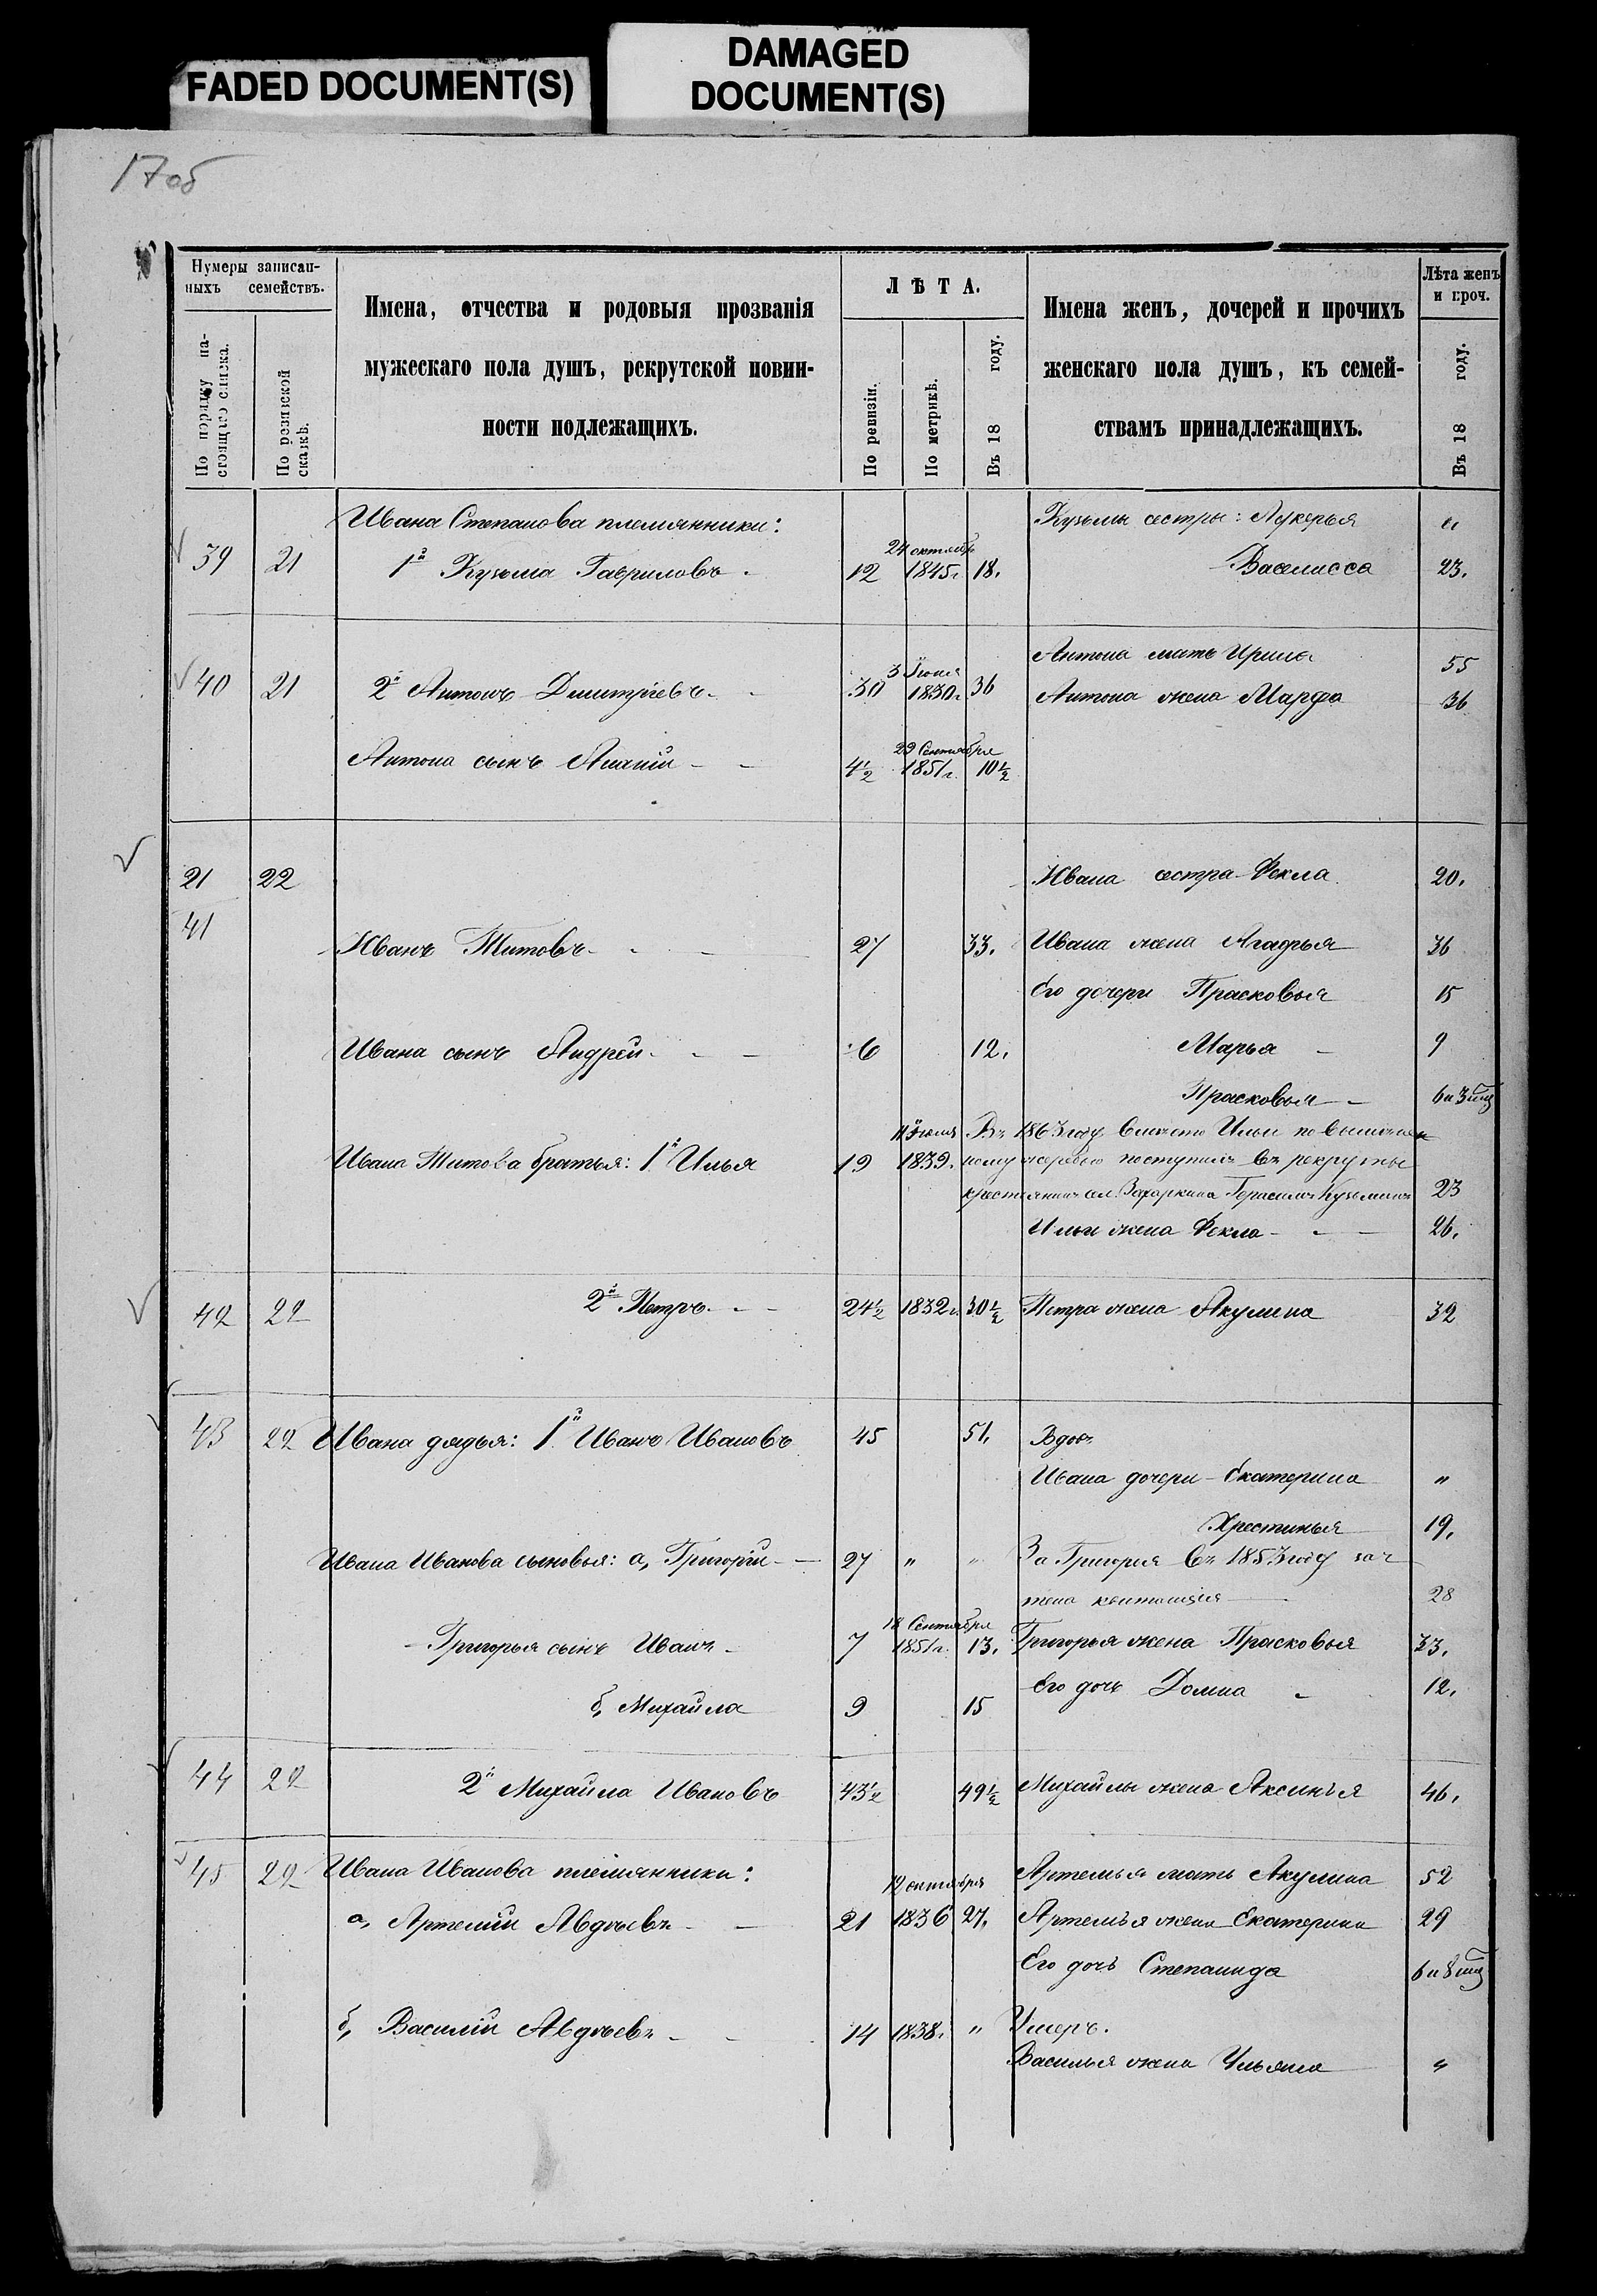 FADED DOCUMENT(S)
DAMAGED
DOCUMENT(S)
17об
Нумеры записан-
ныхъ семействъ.
По порядку на-
стоящаго списка.
По ревизской
сказкѣ.
Имена, отчества и родовыя прозванія
мужескаго пола душъ, рекрутской повин-
ности подлежащихъ.
ЛѢТА.
По ревизіи.
По метрикѣ.
Въ 18 году.
Имена женъ, дочерей и прочихъ
женскаго пола душъ, къ семей-
ствамъ принадлежащихъ.
Лѣта женъ
и проч.
Въ 18 году.
Ивана Степанова племянники: Кузьмы сестры: Лукерья "
24 октябр
39 21 1й Кузьма Гавриловъ 12 1845г. 18. Васелисса 23.
Антона мать Ирина 55
3 Іюня
40 21 2й Антонъ Дмитріевъ 30 1830г. 36 Антона жена Марфа 36
29 Сентября
Антона сынъ Ананій 4½ 1851г. 10½
21 22 Ивана сестра Фекла 20.
41
Иванъ Титовъ 27 33. Ивана жена Агафья 36
Его дочери Прасковья 15
Ивана сынъ Андрей 6 12. Марья 9
Прасковья 6 и 3 мц
11 Іюля Въ 1863 году вмѣсто Ильи по вынутом
Ивана Титова братья: 1й Илья 19 1839. ному жеребью поступилъ въ рекруты
крестьянинъ сел. Захаркина Герасимъ Кузьминъ 23
Ильи жена Фекла 26.
42 22 2й Петръ 24½ 1832г. 30½ Петра жена Акулина 32
43 22 Ивана дядья: 1й Иванъ Ивановъ 45 51. Вдов
Ивана дочери Екатерина "
Хрестинья 19.
Ивана Иванова сыновья: а, Григорій 27 " " За Григорія въ 1853 году зач
тена квитанція 28
18 Сентября
Григорья сынъ Иванъ 7 1851г. 13. Григорья жена Прасковья 33.
Его дочь Домна 12.
б, Михайла 9 15
44 22 2й Михайла Ивановъ 43½ 49½ Михайлы жена Аксинья 46.
45 22 Ивана Иванова племянники: Артемья мать Акулина 52
19 октября
а, Артемій Авдѣевъ 21 1836 27. Артемья жена Екатерина 29
Его дочь Степанида 6 и 8 мц
б, Василій Авдѣевъ 14 1838. " Умеръ.
Василья жена Ульяна "